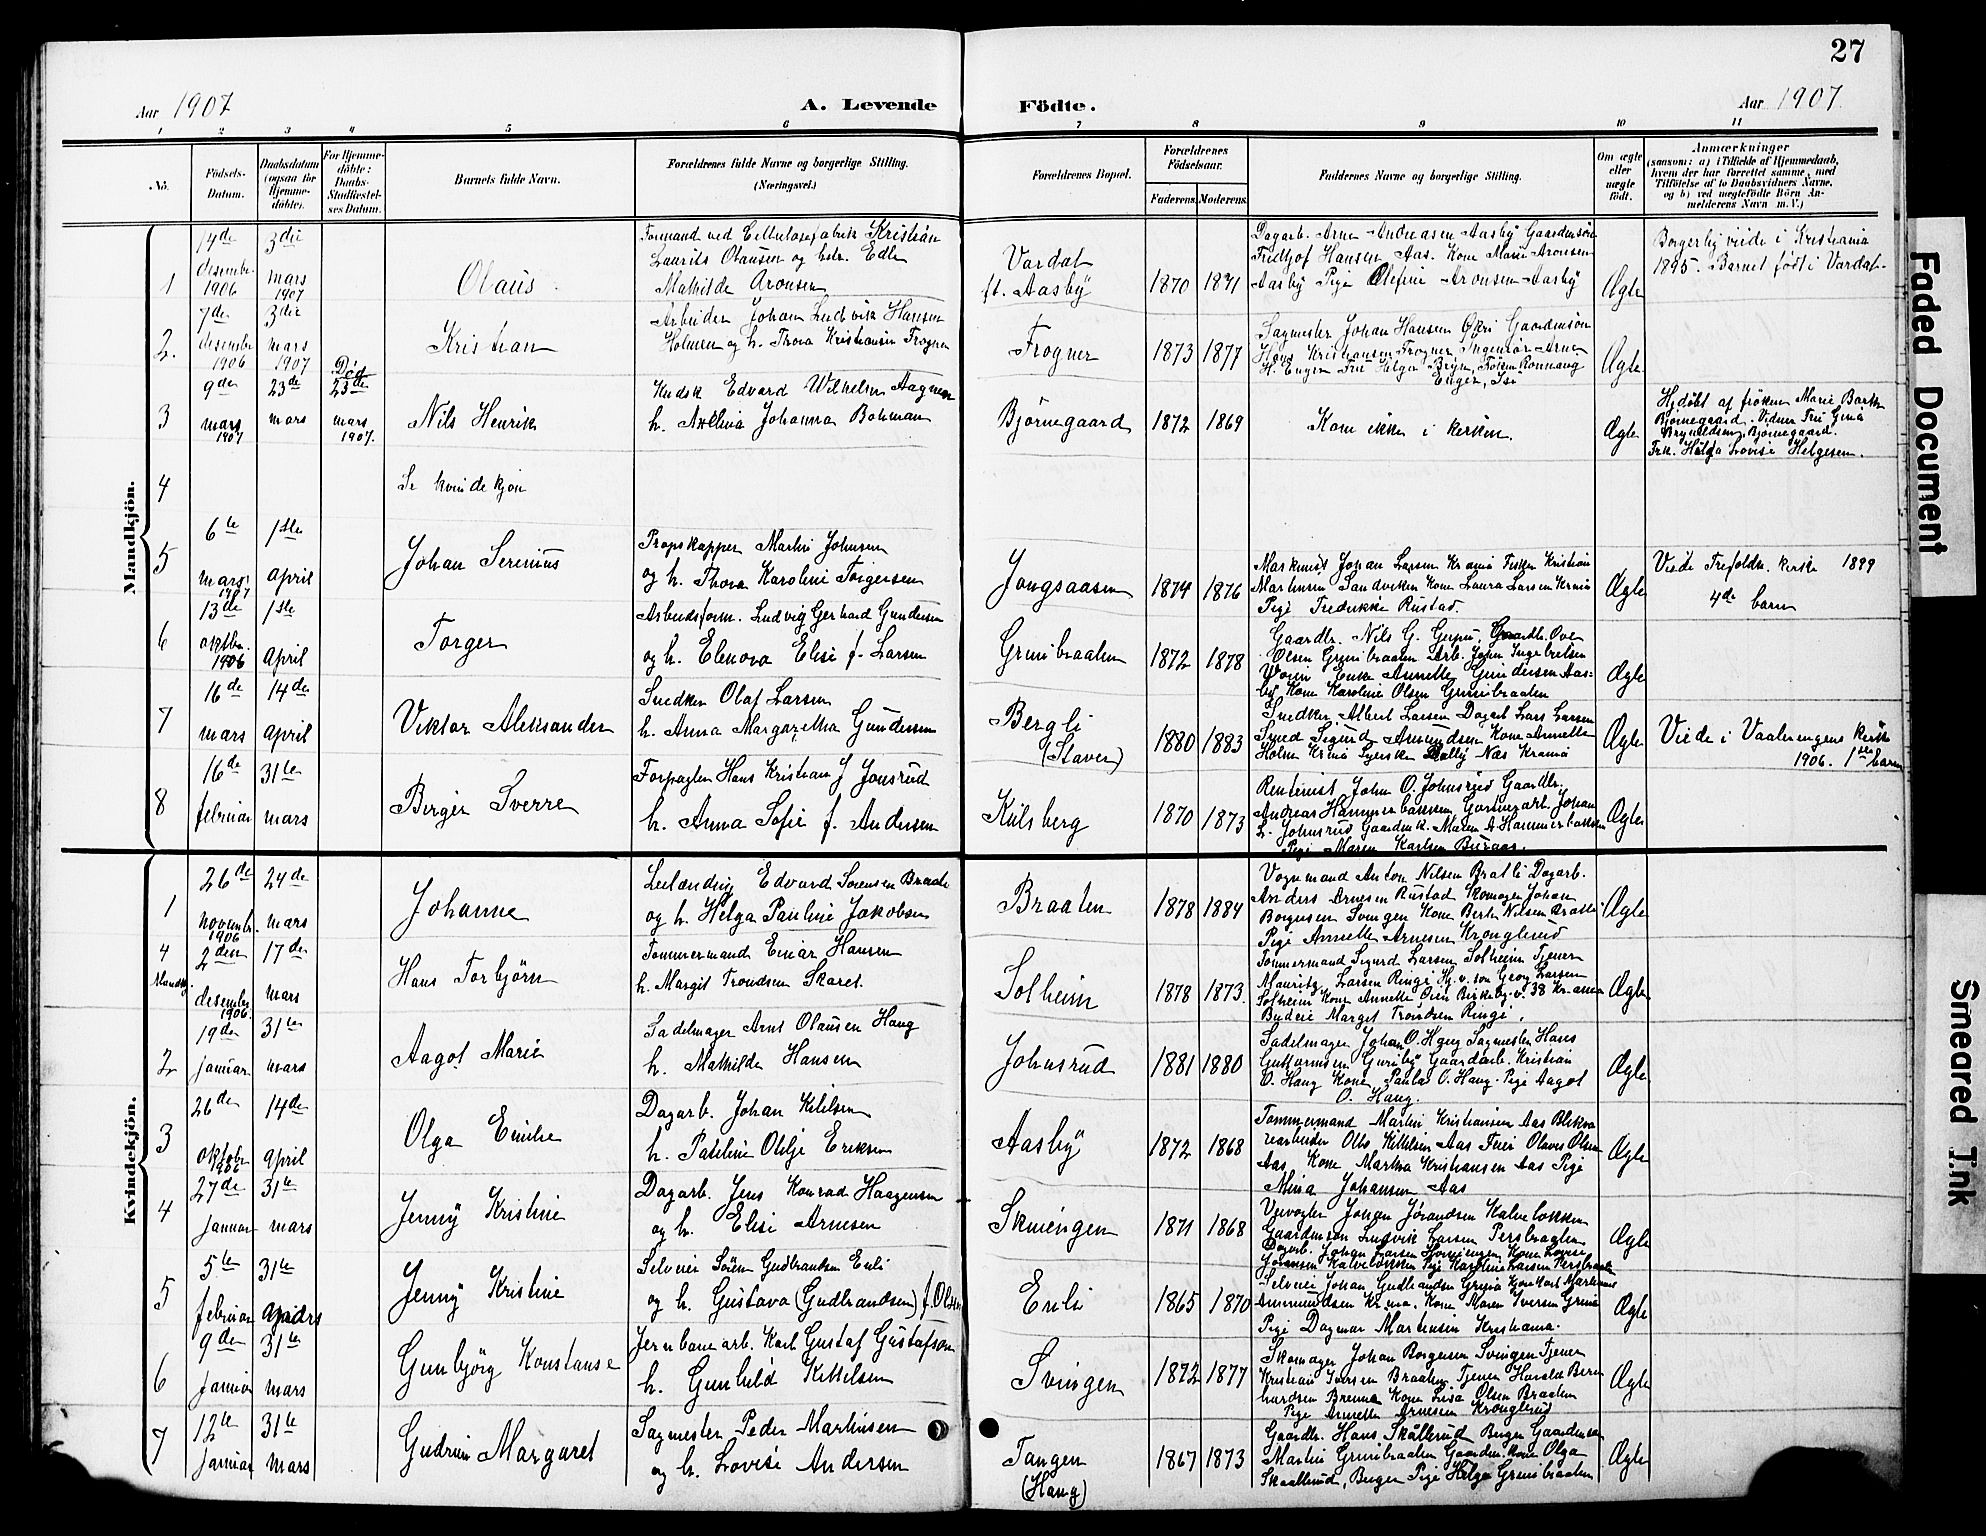 27
Aar 1907
A. Levende
Födte.
Aar 1907.
1 2 3 4 5 6 7 8 9 10 11
No.
Födsels-Datum.
Daabsdatum (ogsaa for Hjemme-döbte).
For Hjemme-döbte: Daabs-Stadfæstel-ses Datum.
Barnets fulde Navn.
Forældrenes fulde Navne og borgerlige Stilling. (Næringsvei.)
Forældrenes Bopæl.
Forældrenes Födselsaar.
Faderens. Moderens.
Faddernes Navne og borgerlige Stilling.
Om ægte eller uægte födt.
Anmærkninger
(saasom: a) i Tilfælde af Hjemmedaab,
hvem der har forrettet samme, med
Tilföielse af to Daabsvidners Navne,
og b) ved uegtefödte Börn An-
melderens Navn m. V.)
Mandkjön.
1
14de desember 1906
3die mars 1907
Olaus
Formand ved Cellulosefabrik Kristian
Laurits Olausen og hstr. Edle
Mathilde Aronsen
Vardal
ft. Aasby
1870 1871
Dagarb. Arne Andreasen Aasby Gaardmsön
Fridtjof Hansen Aas. Kone Marie Aronsen
Aasby Pige Olefine Aronsen Aasby
Ægte
Borgerlig viede i Kristiania
1895. Barnet født i Vardal.
2.
7de desember 1906
3die mars 1907
Kristian
Arbeider Johan Ludvik Hansen
Holmen og h. Thora Kristiansen Frogner
Frogner
1873 1877
Sagmester Johan Hansen Gaardmsön
Hans Kristiansen Frogner, Ingeniör Arne
H. Enger Fru Helga Bryn, Fröken Ronnaug
Enger,
Ægte
3
9de mars 1907
23de mars
Död
23de mars 1907.
Nils Henrik
Kudsk Edvard Wilhelm Aagmen
h. Avelina Johanna Bohman
Björnegaard
1872 1869
Kom ikke i kirken.
Ægte
Hjdöbt af fröken Marie Barth
Bjornegaard. Vidner Fru Gina
Brynildsen, Bjornegaard.
Frk. Hilda Lovise Helgesen.
4
Se kvindekjön
5
6te mars 1907
1ste april
Johan Serenius
Propskapper Martin Johnsen
og h. Thora Karoline Torgersen
Jongsaasen
1874 1876
Maskinist Johan Larsen Krania Fisker Kristian
Martinsen Sandviken Kone Laura Larsen Krania
Pige Fredrikke Rustad.
Ægte
Viede Trefoldh. kirke 1899
4de barn
6
13de oktbr. 1906
1ste april
Torger
Arbeidsform. Ludvig Gerhard Gundersen
og h. Elenora Elise f. Larsen
Grinibraaten
1872 1878
Gaardbr. Nils G. Gaardbr. Ove
Olsen Grinibraaten Arb. John Ingebretsen
Voien Enke Annette Gundersen Aas-
by Kone Karoline Olsen Grinibraaten
Ægte
7
16de mars
14de april
Viktor Aleksander
Snedker Olaf Larsen
h. Anna Margaretha Gundersen
Bergli
(Staver)
1880 1883
Snedker Albert Larsen Dagarb Lars Larsen
Smed Sigurd Amundsen Kone Annette
Holm Krania Syerske Dolly Næs Krania
Ægte
Viede i Vaalerengens kirke
1906. 1ste barn
8
16de februar
31te mars
Birger Sverre
Forpagter Hans Kristian J Jonsrud
h. Anna Sofie f. Andersen
Kilsberg
1870 1873
Rentenist John O. Johnsrud Gaardbr.
Andreas Hammerbakken Gartnerarb. Johan
L. Johnsrud Gaardmk. Maren A Hammerbakken
Pige Maren Karlsen Buraas.
Ægte
Kvindekjön.
1
26de novembr. 1906
24de mars
Johanne
Leilænding Edvard Sörensen Braate
og h. Helga Pauline Jakobsen
Braaten
1878 1884
Vognmand Anton Nilsen Bratli Dagarb.
Anders Arnesen Rustad Skomager Johan
Borgersen Svingen Kone Berte Nilsen Bratli
Pige Annette Arnesen Kronglerud
Ægte
4
Mandkj.
2den desember 1906.
17de mars
Hans Torbjörn
Tømmermand Einar Hansen
h. Margit Trondsen Skaret
Solheim
1878 1873.
Tømmermand Sigurd Larsen Solheim Tjener
Mauritz Larsen Ringi Hj.v. søn Georg Larsen
Solheim Kone Annette Oien Birkeby v. 38 Kr.ania
Budeie Margit Trondsen Ringi.
Ægte
2
19de januar
31te mars
Aagot Marie
Sadelmager Arnt Olausen Haug
h. Mathilde Hansen
Johnsrud
1881 1880
Sadelmager Johan O. Haug Sagmester Hans
Guttormsen Guriby Gaardarb. Kristian
O. Haug Kone Paula O. Haug. Pige Aagot
O. Haug.
Ægte
3
26de oktober 1906
14de april
Olga Emilie
Dagarb. Johan Kittilsen
h. Pauline Otilje Eriksen
Aasby
1872 1868
Tømmermand Martin Kristiansen Aas Bleksa
rearbeider Otto Kittelsen Aas Frue Olaves Olsen
Aas Kone Martha Kristiansen Aas Pige
Mina Johansen Aas
Ægte
4
27de januar
31te mars
Jenny Kristine
Dagarb. Jens Konrad Haagensen
og h. Elise Arnesen
Skuiengen
1871 1868
Veivogter Johan Jörandsen Kalvelökken
Gaardmsön Ludvik Larsen Persbraaten
Dagarb. Johan Larsen Kone Lovise
Jöransen Kalvelökken Pige Karoline Larsen Persbraaten
Ægte
5
5te februar
31te mars
Jenny Kristine
Selveier Sören Gudbrandsen Enli
og h. Gustava (Gudbrandsen) f. Olsen
Enli
1865 1870
Selveier Johan Gudbrandsen Grinia Martinius
Ammundsen Kr.nia. Kone Maren Iversen Grinia
Pige Dagmar Martensen Kristiania.
Ægte
6
9de januar
31te mars
Gunbjörg Konstanse
Jernbanearb. Karl Gustaf Gustafson
h. Gunhild Kittelsen
Svingen
1872 1877
Skomager Johan Borgersen Svingen Tjener
Kristian Iversen Braaten Tjener Harald Bern
hardsen Brenna Kone Lisa Olsen Braaten
Pige Annette Arnesen Kronglerud
Ægte
7
12te januar
31te mars
Gudrun Margaret
Sagmester Peder Martinsen
og h. Lovise Andersen
Tangen
(Haug)
1867 1873
Gaardbr. Hans Skallerud Burger Gaardmsön
Martin Grinibraaten Gaardm.kone Olga
Skallerud, Burger Pige Helga Grinibraaten
Ægte
Faded Document
Smeared Ink